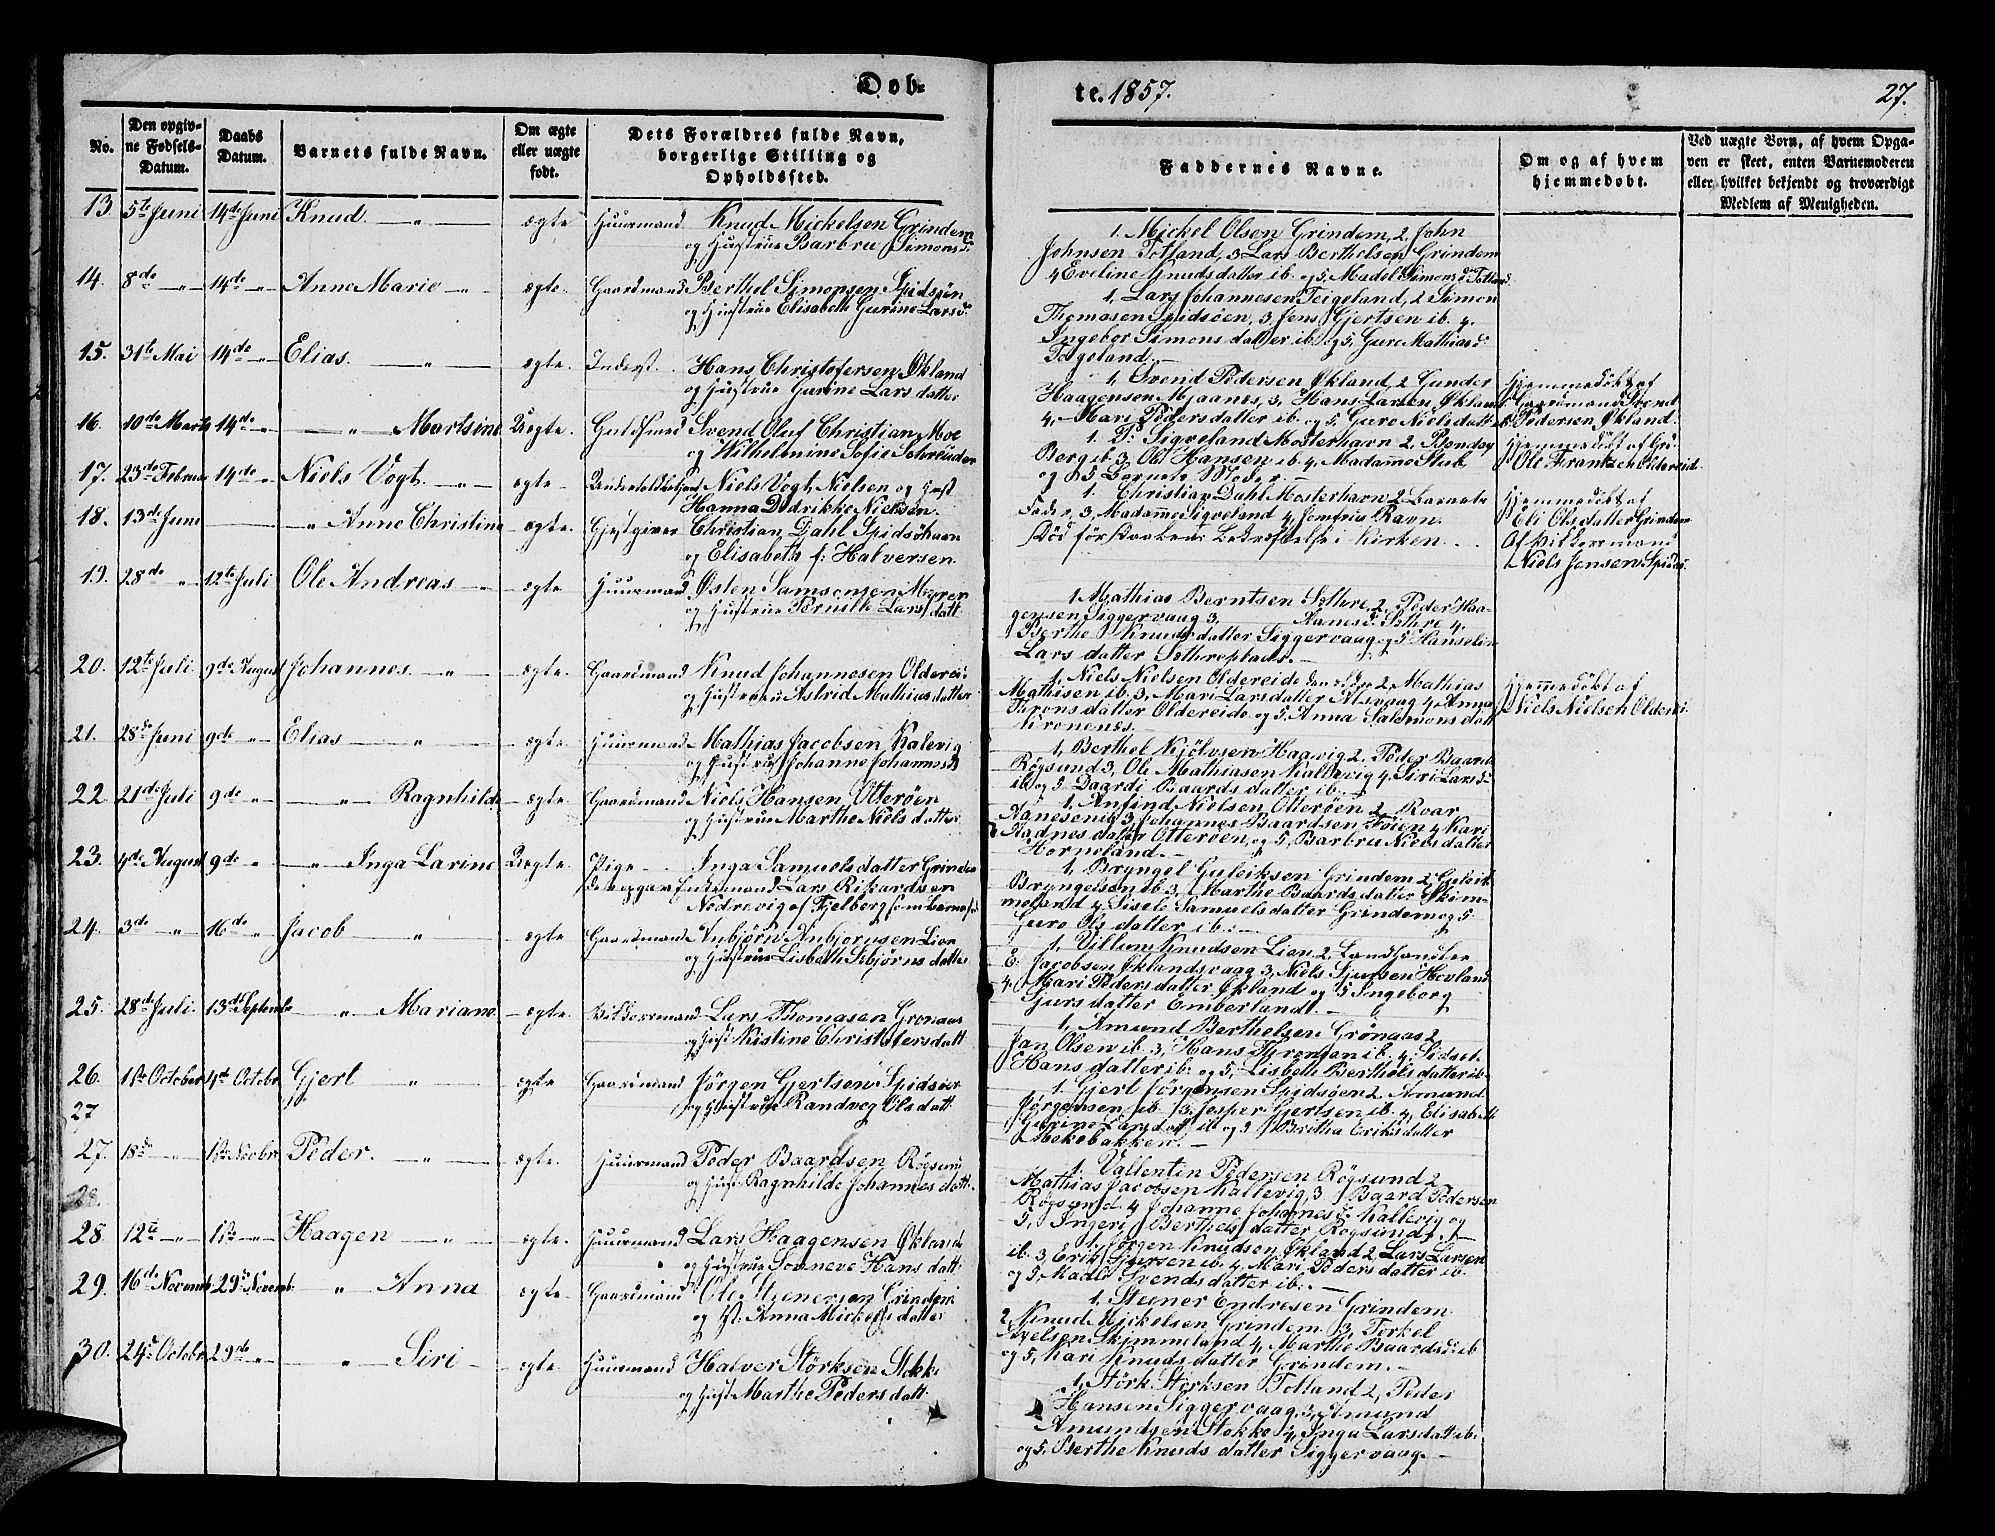 Døb-
No.
Den opgiv-
ne Fødsels-
Datum.
Daabs
Datum.
Barnets fulde Navn.
Om ægte
eller uægte
født.
Dets Forældres fulde Navn,
borgerlige Stilling og
Opholdssted.
13. 5te Juni 14de Juni Knud — " ægte Huurmand Knud Mickelsen Grindem
og Hustrue Barbru Simonsd:
14. 8de — " 14de — " Anne Marie — " ægte. Gaardmand Berthel Simonsen Spidsøn
og Hustrue Elisabeth Gurine Larsd:
15. 31te Mai 14de — " Elias. — " ægte. Inderst Hans Christofersen Økland
og Hustrue Gurine Lars datter
16. 10de Marts 14de — " — " Martsine Uægte. Guldsmed Svend Oluf Christian Moe
og Wilhelmine Sofie Schreuder
17. 23de Februar 14de — " Niels Vogt. — " ægte Niels Vogt Nielsen og Hust
Hanna Didrikke Nielsen.
18. 13de Juni — " Anne Christina ægte. Gjestgiver Christian Dahl Spidsøhavn
og Elisabeth f: Halversen.
19. 28de " 12te Juli Ole Andreas — " ægte Huurmand Østen Samsonsen Meren
og Hustrue Pernille Lars datt:
20. 12te Juli 9de August Johannes. — " ægte Gaardmand Knud Johannesen Oldereide
og Hustrue Astrid Mathias datter
21. 28de Juni 9de — " Elias — " ægte. Huurmand Mathias Jacobsen Kalevig
og Hustrue Johanne Johannesd:
22 21de Juli 9de — " — " Ragnhilde ægte. Gaardmand Niels Hansen Otterøen
og Hustrue Marthe Niels datter
23. 4de August 9de " — " Inga Larine Uægte. Pige — Inga Samuels datter Grindem
Lars Rikardsen
Nedrevig af Fjelberg som Barnefad
24. 3de " 16de " Jacob — " ægte Gaardmand Anbjørn Anbjørnsen Lien
og Hustrue Lisbeth Esbjørns datter
25. 28de Juli. 13de Septembr — " Mariane. ægte. Lars Thomasen Gronaas
og Hust Kistine Christofersdatt
26. 1ste October 4de Octobr Gjert " ægte Gaardmand Jørgen Gjertsen Spidsøer
og Hustrue Randveg Ols datt:
27
27. 18de " 1ste Novbr Peder. — " ægte. Huurmand Peder Baardsen Røgsund
og Hust Ragnhilde Johannes datt.
28.
28 12te — " 1ste — " Haagen — " ægte. Huurmand Lars Haagensen Økland
og Hustrue Sønneve Hans datt
29. 16de Novemb 29de Novemb. " Anna ægte. Gaardmand Ole Stenersen Grindem
og H: Anna Mickels datter
30. 24de Octobr 29de " " Siri ægte. Huurmand Halver Størksen Stokke
og Hust Marthe Peders datt:
te. 1857.
27.
Faddernes Navne.
Om og af hvem
hjemmedøbt.
Ved uægte Børn, af hvem Opga-
ven er skeet, enten Barnemoderen
eller hvilket bekjendt og troværdigt
Medlem af Menigheden.
1. Mickel Olsen Grindem, 2, John
Johnsen Totland, 3 Lars Berthelsen Grindem
4 Eveline Knudsdatter ib. og 5, Madel Simonsd: Totland.
1, Lars Johannesen Teigeland, 2 Simon
Thomasen Spidsøen, 3, Jens Gjertsen ib. 4.
Ingebor Simons datter ib. og 5, Guro Mathiasd:
Teigeland. —
1, Svend Pedersen Økland, 2 Gunder
Haagensen Mjaanes, 3, Hans Larsen Økland
4, Mari Pedersdatter ib. og 5, Guro Nielsdatter
1. P. Sigveland Mosterhavn 2. Bendix
Berg ib. 3, Ole Hansen ib. 4. Madamme Stub
og 5 Barnets Moder. —
1. Christian Dahl Mosterhavn 2 Barnets
Fader, 3, Madamme Sigveland 4, Jomfrue Ravn.
Død før Daabens Bekræftelse i Kirken.
1 Mathias Berntsen Sæthre, 2. Peder Haa-
gensen Siggervaag 3, Aanesd: Sæthre 4.
Berthe Knudsdatter Siggervaag og 5 Hanseline
Lars datter Sæthreplads. —
1, Niels Nielsen Oldereide den ældre 2, Mathias
Mathisen ib. 3, Mari Larsdatter Alsvaag 4, Anna
Thronsdatter Oldereide og 5, Anna Salemons datt
Kronenes.
1, Berthel Kjølvsen Haavig 2, Peder Baards
Røgsund 3, Ole Mathiasen Kallevig 4, Siri Larsd:
ib og 5 Daardi Baards datter ib. —
1, Anfind Nielsen Otterøen 2. Roar
Aanesen ib 3, Johannes Baardsen Føien 4 Kari
Aadnes datter Otterøen, og 5, Barbru Nielsdatter
Horneland. —
1, Bryngel Guleiksen Grindem 2, Guleik
Bryngelsen ib 3, Marthe Baardsdatter Skim-
meland 4, Sisele Samuelsdatter Grindem og 5
Guro Ols datter ib. —
1. Villum Knudsen Lien 2, Landhandler
E. Jacobsen Øklandsvaag 3, Niels Sjursen Hovland
4, Mari Peders datter Økland og 5 Ingeborg
Sjurs datter Emberlandt. —
1, Amund Berthelsen Grønaas 2
Jan Olsen ib. 3, Hans Thronsen ib. 4, Sidsel
Hans datter ib. og 5, Lisbeth Berthels datter ib.
1. Gjert Jørgensen Spidsøen 2. Amund
Jørgensen ib. 3, Jesper Gjertsen ib. 4, Elisabeth
Gurine Larsdatt ib og 5 Britha Eriks datter
Bekebakken. —
1. Vallentin Pedersen Røgsund 2
Mathias Jacobsen Kallevig, 3 Baard Pedersen
Røgsund 4 Johanne Johannes d: Kallevig og
5, Ingeri Berthels datter Røgsund. —
1. Jørgen Knudsen Økland 2 Lars Larsen
ib. 3 Erik Sjursen ib. 4, Mari Peders datter ib.
og 5, Madel Svends datter ib. —
1. Steener Endresen Grindem
2, Knud Mickelsen Grindem 3, Torkel
Axelsen Skimmeland 4, Marthe Baardsd: ib
og 5, Kari Knuds datter Grindem. —
1, Størk Størksen Totland 2, Peder
Hansen Siggervaag, 3, Amund
Amundsen Stokke 4, Inga Larsdatt ib.
og 5, Berthe Knuds datter Siggervaag. —
Hjemmedøbt af
Gaardmand Svend
Pedersen Økland.
Hjemmedøbt af
Ole Frantzen Oldereid
Hjemmedøbt af
Eli Olsdatter Grindem
Af
Niels Jensen Spids:
Hjemmedøbt af
Niels Nielsen Oldereid.